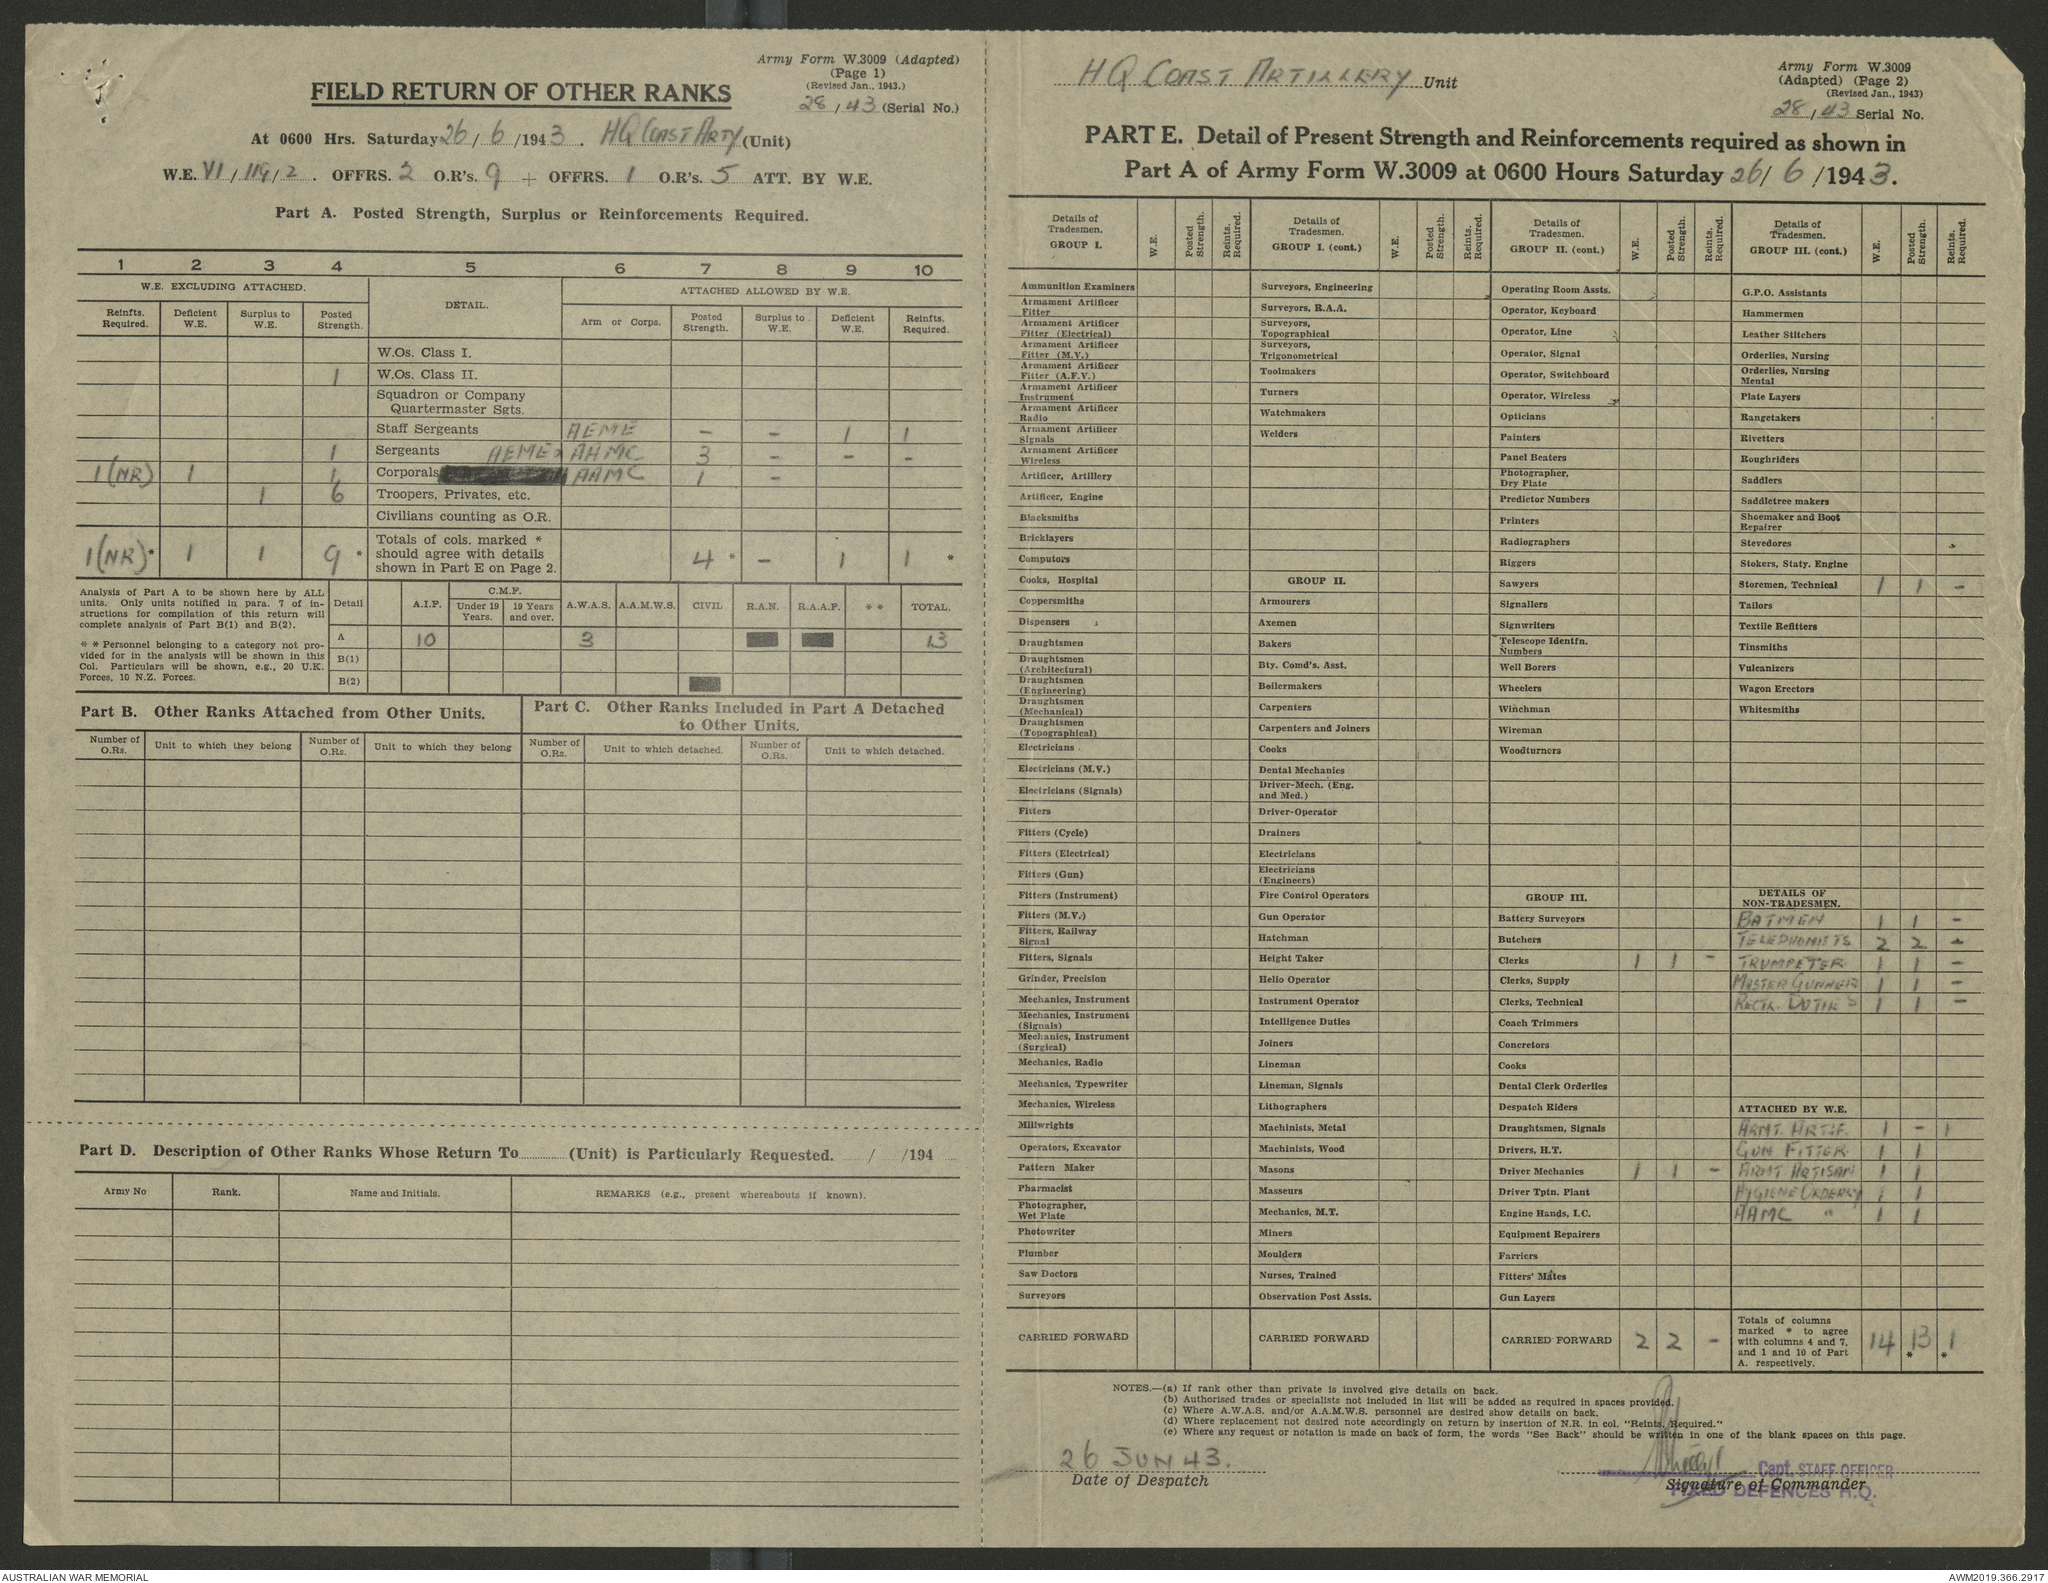 Army Form W.3009 (Adapted)
(Page 1)
(Revised Jan., 1943.)
28/43 (Serial No.)
FIELD RETURN OF OTHER RANKS
At 0600 Hrs. Saturday 26/6/1943. HQ COAST ARTY (Unit)
W.E. VI/119/2. OFFRS. 2 O.R's. 9 + OFFRS. 1 O.R's. 5 ATT. BY W.E.
Part A. Posted Strength, Surplus or Reinforcements Required.
1 2 3 4 5 6 7 8 9 10
W.E. EXCLUDING ATTACHED. DETAIL. ATTACHED ALLOWED BY W.E.
Reinfts. Required. Deficient W.E. Surplus to W.E. Posted Strength. Arm or Corps. Posted Strength. Surplus to W.E. Deficient W.E. Reinfts. Required.
W.Os. Class I.
1 W.Os. Class II.
Squadron or Company
Quartermaster Sgts.
Staff Sergeants AEME – – 1 1
1 Sergeants AEME & AAMC 3 – – –
1(NR) 1 1 Corporals AAMC 1 –
1 6 Troopers, Privates, etc.
Civilians counting as O.R.
1(NR)* 1 1 9* Totals of cols. marked * should agree with details shown in Part E on Page 2. 4* – 1 1*
Analysis of Part A to be shown here by ALL
units. Only units notified in para. 7 of in-
structions for compilation of this return will
complete analysis of Part B(1) and B(2).
* * Personnel belonging to a category not pro-
vided for in the analysis will be shown in this
Col. Particulars will be shown, e.g., 20 U.K.
Forces, 10 N.Z. Forces.
Detail A.I.F. C.M.F. Under 19 Years. 19 Years and over. A.W.A.S. A.A.M.W.S. CIVIL R.A.N. R.A.A.F. * * TOTAL.
A 10 3 13
B(1)
B(2)
Part B. Other Ranks Attached from Other Units.
Number of O.Rs. Unit to which they belong Number of O.Rs. Unit to which they belong
Part C. Other Ranks Included in Part A Detached
to Other Units.
Number of O.Rs. Unit to which detached. Number of O.Rs. Unit to which detached.
Part D. Description of Other Ranks Whose Return To (Unit) is Particularly Requested. / /194
Army No Rank. Name and Initials. REMARKS (e.g., present whereabouts if known).
HQ COAST ARTILLERY Unit
Army Form W.3009
(Adapted) (Page 2)
(Revised Jan., 1943)
28/43 Serial No.
PART E. Detail of Present Strength and Reinforcements required as shown in
Part A of Army Form W.3009 at 0600 Hours Saturday 26/6/1943.
Details of Tradesmen. GROUP I. W.E. Posted Strength. Reints. Required.
Ammunition Examiners
Armament Artificer Fitter
Armament Artificer Fitter (Electrical)
Armament Artificer Fitter (M.V.)
Armament Artificer Fitter (A.F.V.)
Armament Artificer Instrument
Armament Artificer Radio
Armament Artificer Signals
Armament Artificer Wireless
Artificer, Artillery
Artificer, Engine
Blacksmiths
Bricklayers
Computors
Cooks, Hospital
Coppersmiths
Dispensers
Draughtsmen
Draughtsmen (Architectural)
Draughtsmen (Engineering)
Draughtsmen (Mechanical)
Draughtsmen (Topographical)
Electricians
Electricians (M.V.)
Electricians (Signals)
Fitters
Fitters (Cycle)
Fitters (Electrical)
Fitters (Gun)
Fitters (Instrument)
Fitters (M.V.)
Fitters, Railway Signal
Fitters, Signals
Grinder, Precision
Mechanics, Instrument
Mechanics, Instrument (Signals)
Mechanics, Instrument (Surgical)
Mechanics, Radio
Mechanics, Typewriter
Mechanics, Wireless
Millwrights
Operators, Excavator
Pattern Maker
Pharmacist
Photographer, Wet Plate
Photowriter
Plumber
Saw Doctors
Surveyors
CARRIED FORWARD
Details of Tradesmen. GROUP I. (cont.) W.E. Posted Strength. Reints. Required.
Surveyors, Engineering
Surveyors, R.A.A.
Surveyors, Topographical
Surveyors, Trigonometrical
Toolmakers
Turners
Watchmakers
Welders
GROUP II.
Armourers
Axemen
Bakers
Bty. Comd's. Asst.
Boilermakers
Carpenters
Carpenters and Joiners
Cooks
Dental Mechanics
Driver-Mech. (Eng. and Med.)
Driver-Operator
Drainers
Electricians
Electricians (Engineers)
Fire Control Operators
Gun Operator
Hatchman
Height Taker
Helio Operator
Instrument Operator
Intelligence Duties
Joiners
Lineman
Lineman, Signals
Lithographers
Machinists, Metal
Machinists, Wood
Masons
Masseurs
Mechanics, M.T.
Miners
Moulders
Nurses, Trained
Observation Post Assts.
CARRIED FORWARD
Details of Tradesmen. GROUP II. (cont.) W.E. Posted Strength. Reints. Required.
Operating Room Assts.
Operator, Keyboard
Operator, Line
Operator, Signal
Operator, Switchboard
Operator, Wireless
Opticians
Painters
Panel Beaters
Photographer, Dry Plate
Predictor Numbers
Printers
Radiographers
Riggers
Sawyers
Signallers
Signwriters
Telescope Identfn. Numbers
Well Borers
Wheelers
Winchman
Wireman
Woodturners
GROUP III.
Battery Surveyors
Butchers
Clerks 1 1 –
Clerks, Supply
Clerks, Technical
Coach Trimmers
Concretors
Cooks
Dental Clerk Orderlies
Despatch Riders
Draughtsmen, Signals
Drivers, H.T.
Driver Mechanics 1 1 –
Driver Tptn. Plant
Engine Hands, I.C.
Equipment Repairers
Farriers
Fitters' Mates
Gun Layers
CARRIED FORWARD 2 2 –
Details of Tradesmen. GROUP III. (cont.) W.E. Posted Strength. Reints. Required.
G.P.O. Assistants
Hammermen
Leather Stitchers
Orderlies, Nursing
Orderlies, Nursing Mental
Plate Layers
Rangetakers
Rivetters
Roughriders
Saddlers
Saddletree makers
Shoemaker and Boot Repairer
Stevedores
Stokers, Staty. Engine
Storemen, Technical 1 1 –
Tailors
Textile Refitters
Tinsmiths
Vulcanizers
Wagon Erectors
Whitesmiths
DETAILS OF NON-TRADESMEN.
BATMEN 1 1 –
TELEPHONISTS 2 2 –
TRUMPETER 1 1 –
MASTER GUNNER 1 1 –
REGTL. DUTIES 1 1 –
ATTACHED BY W.E.
ARMT. ARTIF. 1 – 1
GUN FITTER 1 1
ARMT ARTISAN 1 1
HYGIENE ORDERLY 1 1
AAMC " 1 1
Totals of columns marked * to agree with columns 4 and 7, and 1 and 10 of Part A. respectively. 14 13* 1*
NOTES.—(a) If rank other than private is involved give details on back.
(b) Authorised trades or specialists not included in list will be added as required in spaces provided.
(c) Where A.W.A.S. and/or A.A.M.W.S. personnel are desired show details on back.
(d) Where replacement not desired note accordingly on return by insertion of N.R. in col. "Reints. Required."
(e) Where any request or notation is made on back of form, the words "See Back" should be written in one of the blank spaces on this page.
26 JUN 43.
Date of Despatch
Capt. STAFF OFFICER
Signature of Commander
FIXED DEFENCES H.Q.
AUSTRALIAN WAR MEMORIAL
AWM2019.366.2917